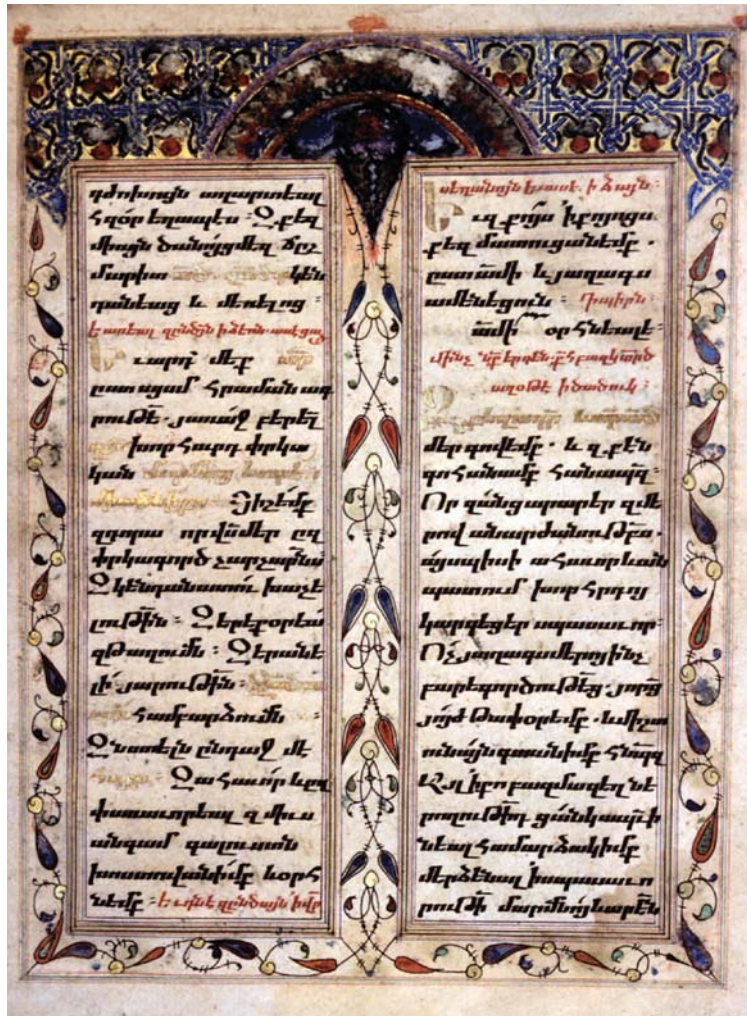 դժոխոցն աղարտեալ
հզօր եղապէս ։ Զքեզ
միայն ծանոյց մեզ ճըշ
մարիտ կեն
դանեաց և մեռելոց ։
Եւ առեալ զընծայն ի ձեռն ասէ
Եւ արդ՝ մեք
ըստ այսմ հրամանագ
րութե. յառաջ բերել
խորհուրդ փրկա
կան
Յիշեմք
որ վն մեր ըզ
փրկագործ չարչարնս
Զկենդանատու խաչե
լութիւն ։ Զերեքօրեա
զթաղումն ։ Զերանե
լի յարութին ։
համբարձումն ։
Զնստելն ընդ աջ
Զահաւոր և զ
փառաւորեալ զմիւս
անգամ գալուստն
խոստովանիմք և օրհ
նեմք ։ Եւ դնէ զընծայն ի վր
սեղանոյն և ասէ. ի ձայն ։
Եւ զքոյս ի քոյոցս
քեզ մատուցանեմք .
ըստ ամի և յաղագս
ամենեցուն ։ Դպիրն
ամի օրհնեալ է
Մինչ նք երգեն քհ
աղօթէ ի ծածուկ ։
մեր գովեմք . և զքէն
գոհանամք հանապզ ։
Որ զանց արարեր զմե
րով անարժանութբս .
այսպիսի ահաւոր և ան
պատում խորհրդոյ
կարգեցեր սպասաւոր ։
Ոչ յաղագս մերոյ ինչ
բարեգործութեց . յորոց
յոյժ թափօրեմք . և միշտ
ունայն գտանիմք հնպզ
Այլ ի քո բազմազեղ նե
րողութիդ
նեալ համարձակիմք
մերձենալ ի սպասաւո
րութի մարմնոյ և արեն